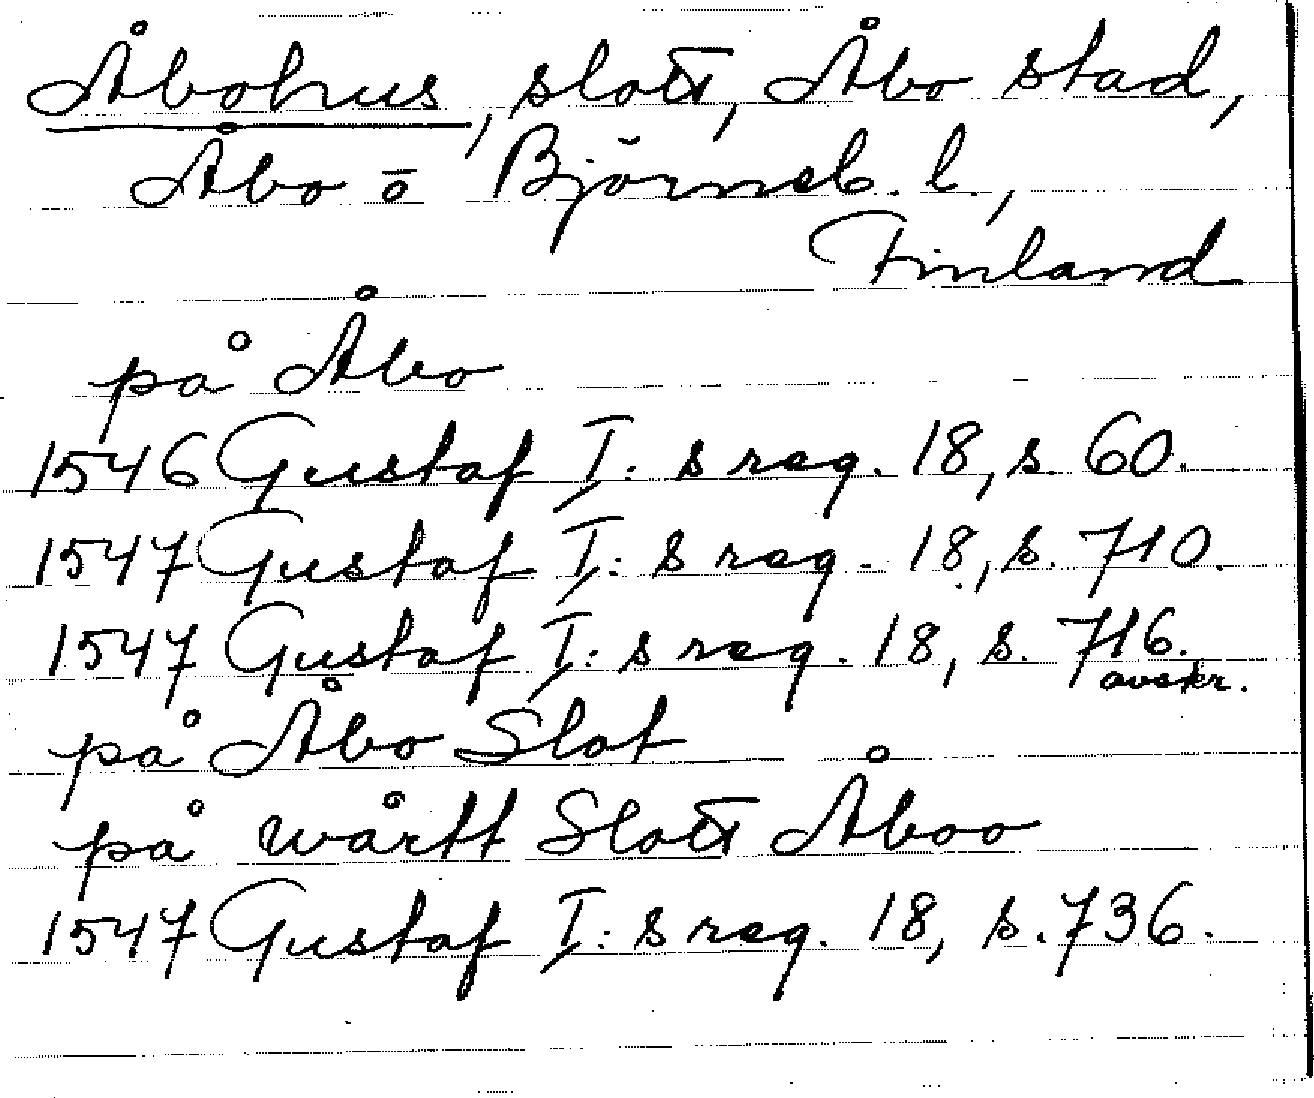 Åbohus, slott, Åbo stad,
Åbo o Björneb. l.,
Finland
på Åbo
1546 Gustaf I:s reg. 18, s. 60.
1547 Gustaf I:s reg. 18, s. 710.
1547 Gustaf I:s reg. 18, s. 716.
avskr.
på Åbo Slot
på wårtt Slott Åboo
1547 Gustaf I:s reg. 18, s. 736.